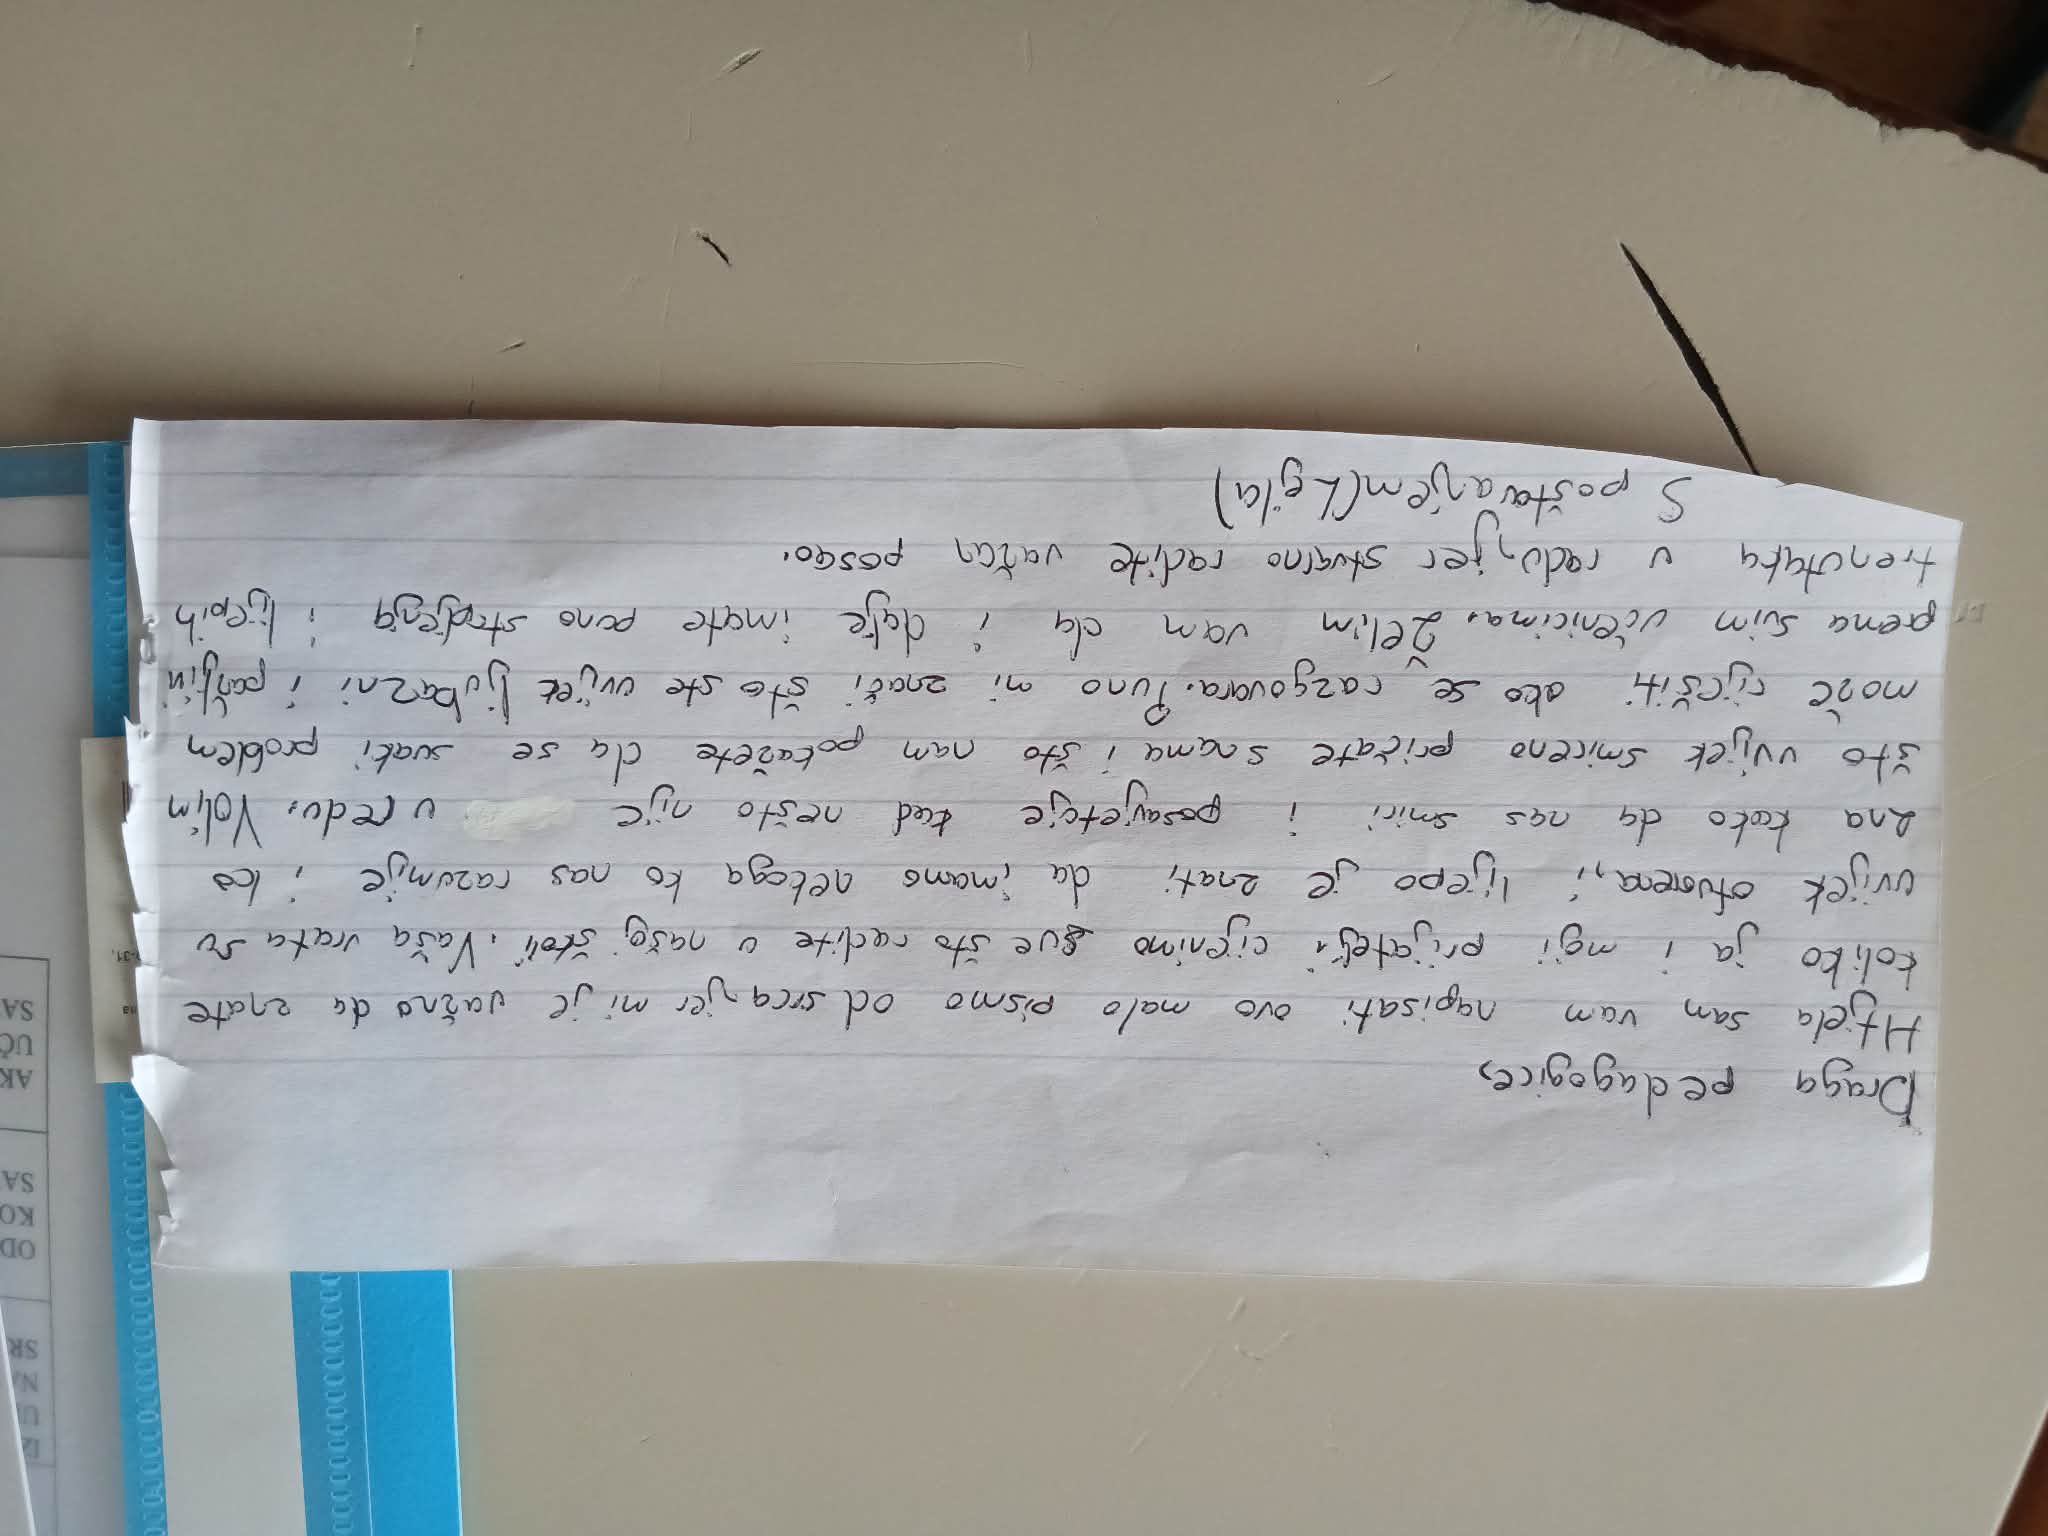 Draga pedagogice,
Htjela sam vam napisati ovo malo pismo od srca, jer mi je važno da znate
koliko ja i moji prijatelji cijenimo sve što radite u našoj školi. Vaša vrata su
uvijek otvorena, i lijepo je znati da imamo nekoga ko nas razumije i ko
zna kako da nas smiri i posavjetuje kad nešto nije u redu. Volim
što uvijek smireno pričate s nama i što nam pokažete da se svaki problem
može riješiti ako se razgovara. Puno mi znači što ste uvijek ljubazni i pažljivi
prema svim učenicima. Želim vam da i dalje imate puno strpljenja i lijepih
trenutaka u radu, jer stvarno radite važan posao.
S poštovanjem (Lejla)
IZ
NA
SR
OD
KO
SA
AK
UČ
SA